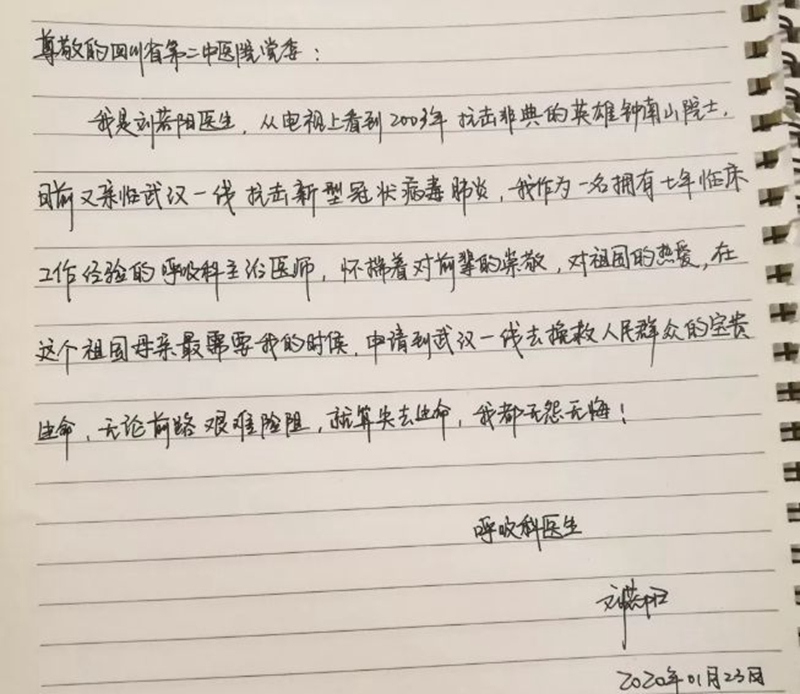 尊敬的四川省第二中医院党委：
我是刘若阳医生，从电视上看到2003年抗击非典的英雄钟南山院士，
目前又亲临武汉一线抗击新型冠状病毒肺炎，我作为一名拥有七年临床
工作经验的呼吸科主治医师，怀揣着对前辈的崇敬，对祖国的热爱，在
这个祖国母亲最需要我的时候，申请到武汉一线去挽救人民群众的宝贵
生命，无论前路艰难险阻，就算失去生命，我都无怨无悔！
呼吸科医生
刘若阳
2020年01月23日